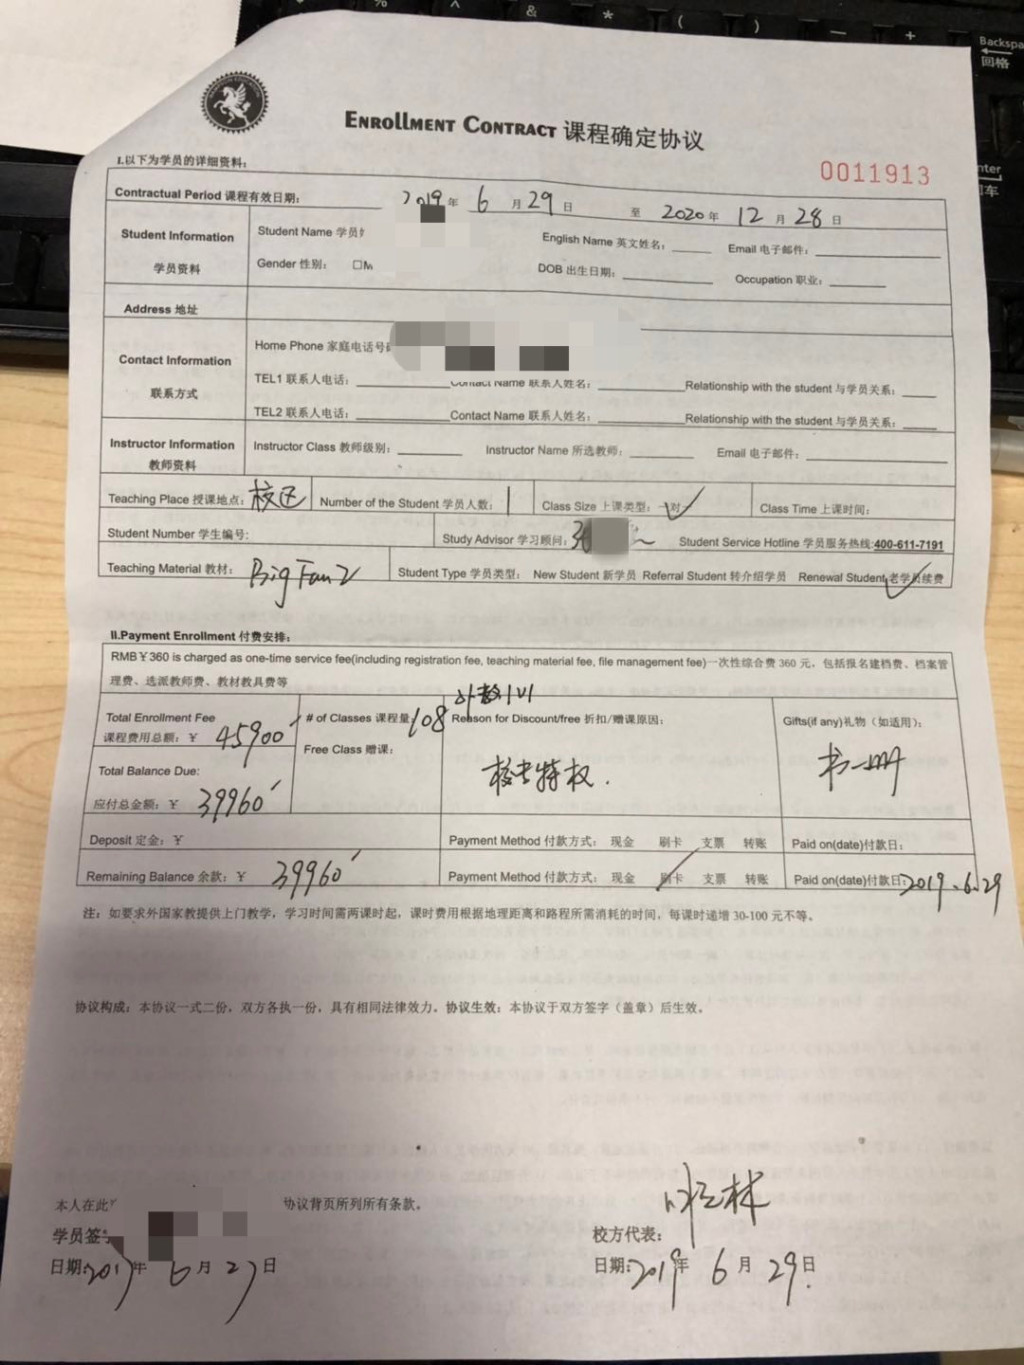 Backspa
回格
nter
车
% ^ & * ( ) — +
ENROLLMENT CONTRACT 课程确定协议
0011913
I.以下为学员的详细资料:
Contractual Period 课程有效日期: 2019年 6 月 29 日 至 2020年 12 月 28 日
Student Information
学员资料
Student Name 学员
English Name 英文姓名:
Email 电子邮件:
Gender 性别: □M
DOB 出生日期:
Occupation 职业:
Address 地址
Contact Information
联系方式
Home Phone 家庭电话号
TEL1 联系人电话: Contact Name 联系人姓名: Relationship with the student 与学员关系:
TEL2 联系人电话: Contact Name 联系人姓名: Relationship with the student 与学员关系:
Instructor Information
教师资料
Instructor Class 教师级别: Instructor Name 所选教师: Email 电子邮件:
Teaching Place 授课地点: 校区 Number of the Student 学员人数: 1 Class Size 上课类型: 一对一 Class Time 上课时间:
Student Number 学生编号: Study Advisor 学习顾问: Student Service Hotline 学员服务热线:400-611-7191
Teaching Material 教材: Big Fun 2 Student Type 学员类型: New Student 新学员 Referral Student 转介绍学员 Renewal Student 老学员续费
II.Payment Enrollment 付费安排:
RMB￥360 is charged as one-time service fee(including registration fee, teaching material fee, file management fee)一次性综合费 360 元,包括报名建档费、档案管
理费、选派教师费、教材教具费等
Total Enrollment Fee
课程费用总额: ￥ 45900
# of Classes 课程量: 108
Free Class 赠课:
Reason for Discount/free 折扣/赠课原因:
校长特权.
Gifts(if any)礼物(如适用):
书一册
Total Balance Due:
应付总金额: ￥ 39960
Deposit 定金: ￥ Payment Method 付款方式: 现金 刷卡 支票 转账 Paid on(date)付款日:
Remaining Balance 余款: ￥ 39960 Payment Method 付款方式: 现金 刷卡 支票 转账 Paid on(date)付款日: 2019.6.29
注:如要求外国家教提供上门教学,学习时间需两课时起,课时费用根据地理距离和路程所需消耗的时间,每课时递增 30-100 元不等。
协议构成:本协议一式二份,双方各执一份,具有相同法律效力。协议生效:本协议于双方签字(盖章)后生效。
本人在此 协议背页所列所有条款。
学员签
日期: 2019年 6 月 29 日
校方代表:
日期: 2019年 6 月 29日